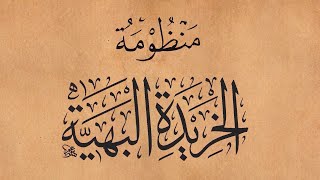 مَنْظُومَةُ
الخَرِيدَةِ البَهِيَّةِ